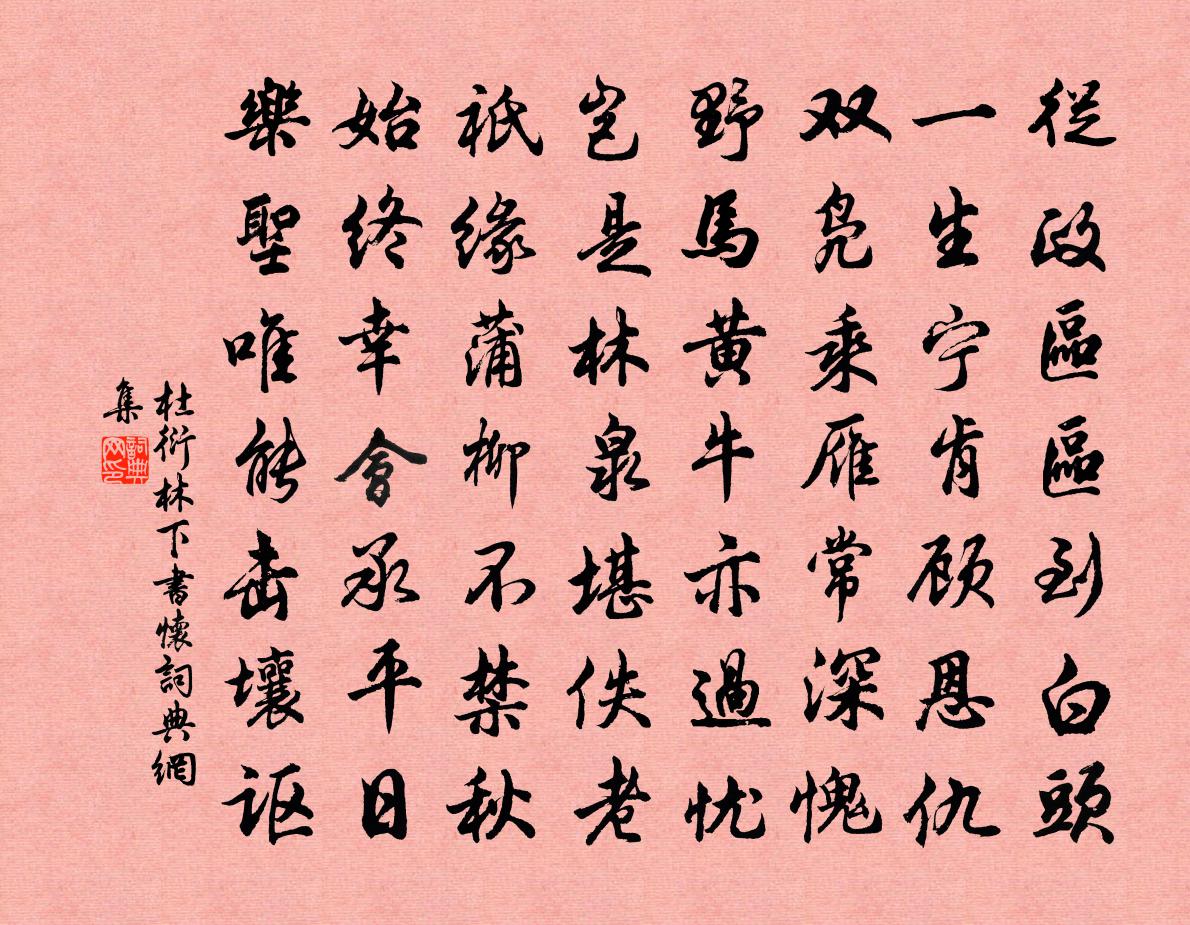 從政區區到白頭
一生宁肯顾恩仇
双凫乘雁常深愧
野馬黄牛亦過忧
岂是林泉堪佚老
祇緣蒲柳不禁秋
始终幸會承平日
樂聖唯能击壤讴
杜衍林下書懷詞典網
集
詞典网印